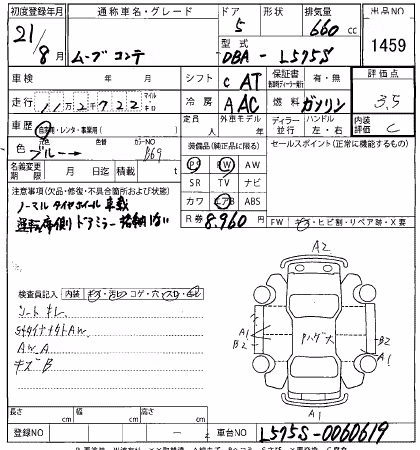 初度登録年月 通称車名・グレード ドア 形状 排気量 出品NO
21/8月 ムーブコンテ 5 660cc 1459
型式 DBA-L575S
車検 年 月 シフト C AT 保証書 有・無 評価点
走行 112千722 マイル キロ 冷房 A AC 燃料 ガソリン 3.5
車歴 自家用・レンタ・事業用( ) 定員 人 外車モデル 年 ディーラー 並行 ハンドル 左・右 内装評価 C
色 ブルー→ 色替 カラーNO B69 装備品(純正品に限る) セールスポイント(正常に機能するもの)
名義変更期限 月 日迄 積載 t PS PW AW
注意事項(欠品・修復・不具合箇所および状態) SR TV ナビ
ノーマルタイヤホイール車載 カワ エアB ABS
運転席側ドアミラー格納しない R券 8,960円 FW キズ・ヒビ割・リペア跡・X要
検査員記入 内装 キズ・汚レ・コゲ・穴・スレ・
シートキレ
AW A
キズB
A2
A1
B2
B2
A1
A1
長さ cm 幅 cm 高さ cm
登録NO 車台NO L575S-0060619